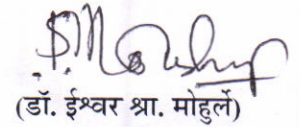 (डॉ. ईश्वर श्रा. मोहुर्ले)